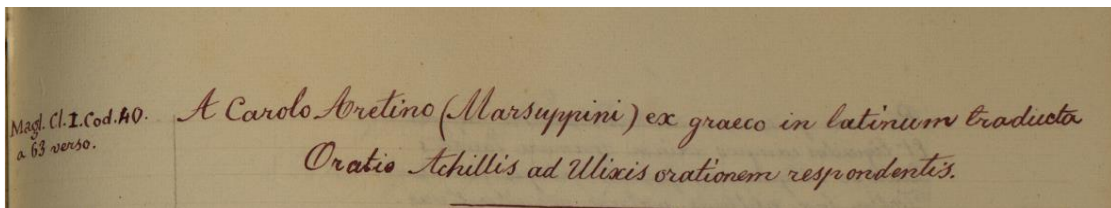 Magl. Cl. I. Cod. 40.
a 63 verso.
A Carolo Aretino (Marsuppini) ex graeco in latinum traducta
Oratio Achillis ad Ulixis orationem respondentis.